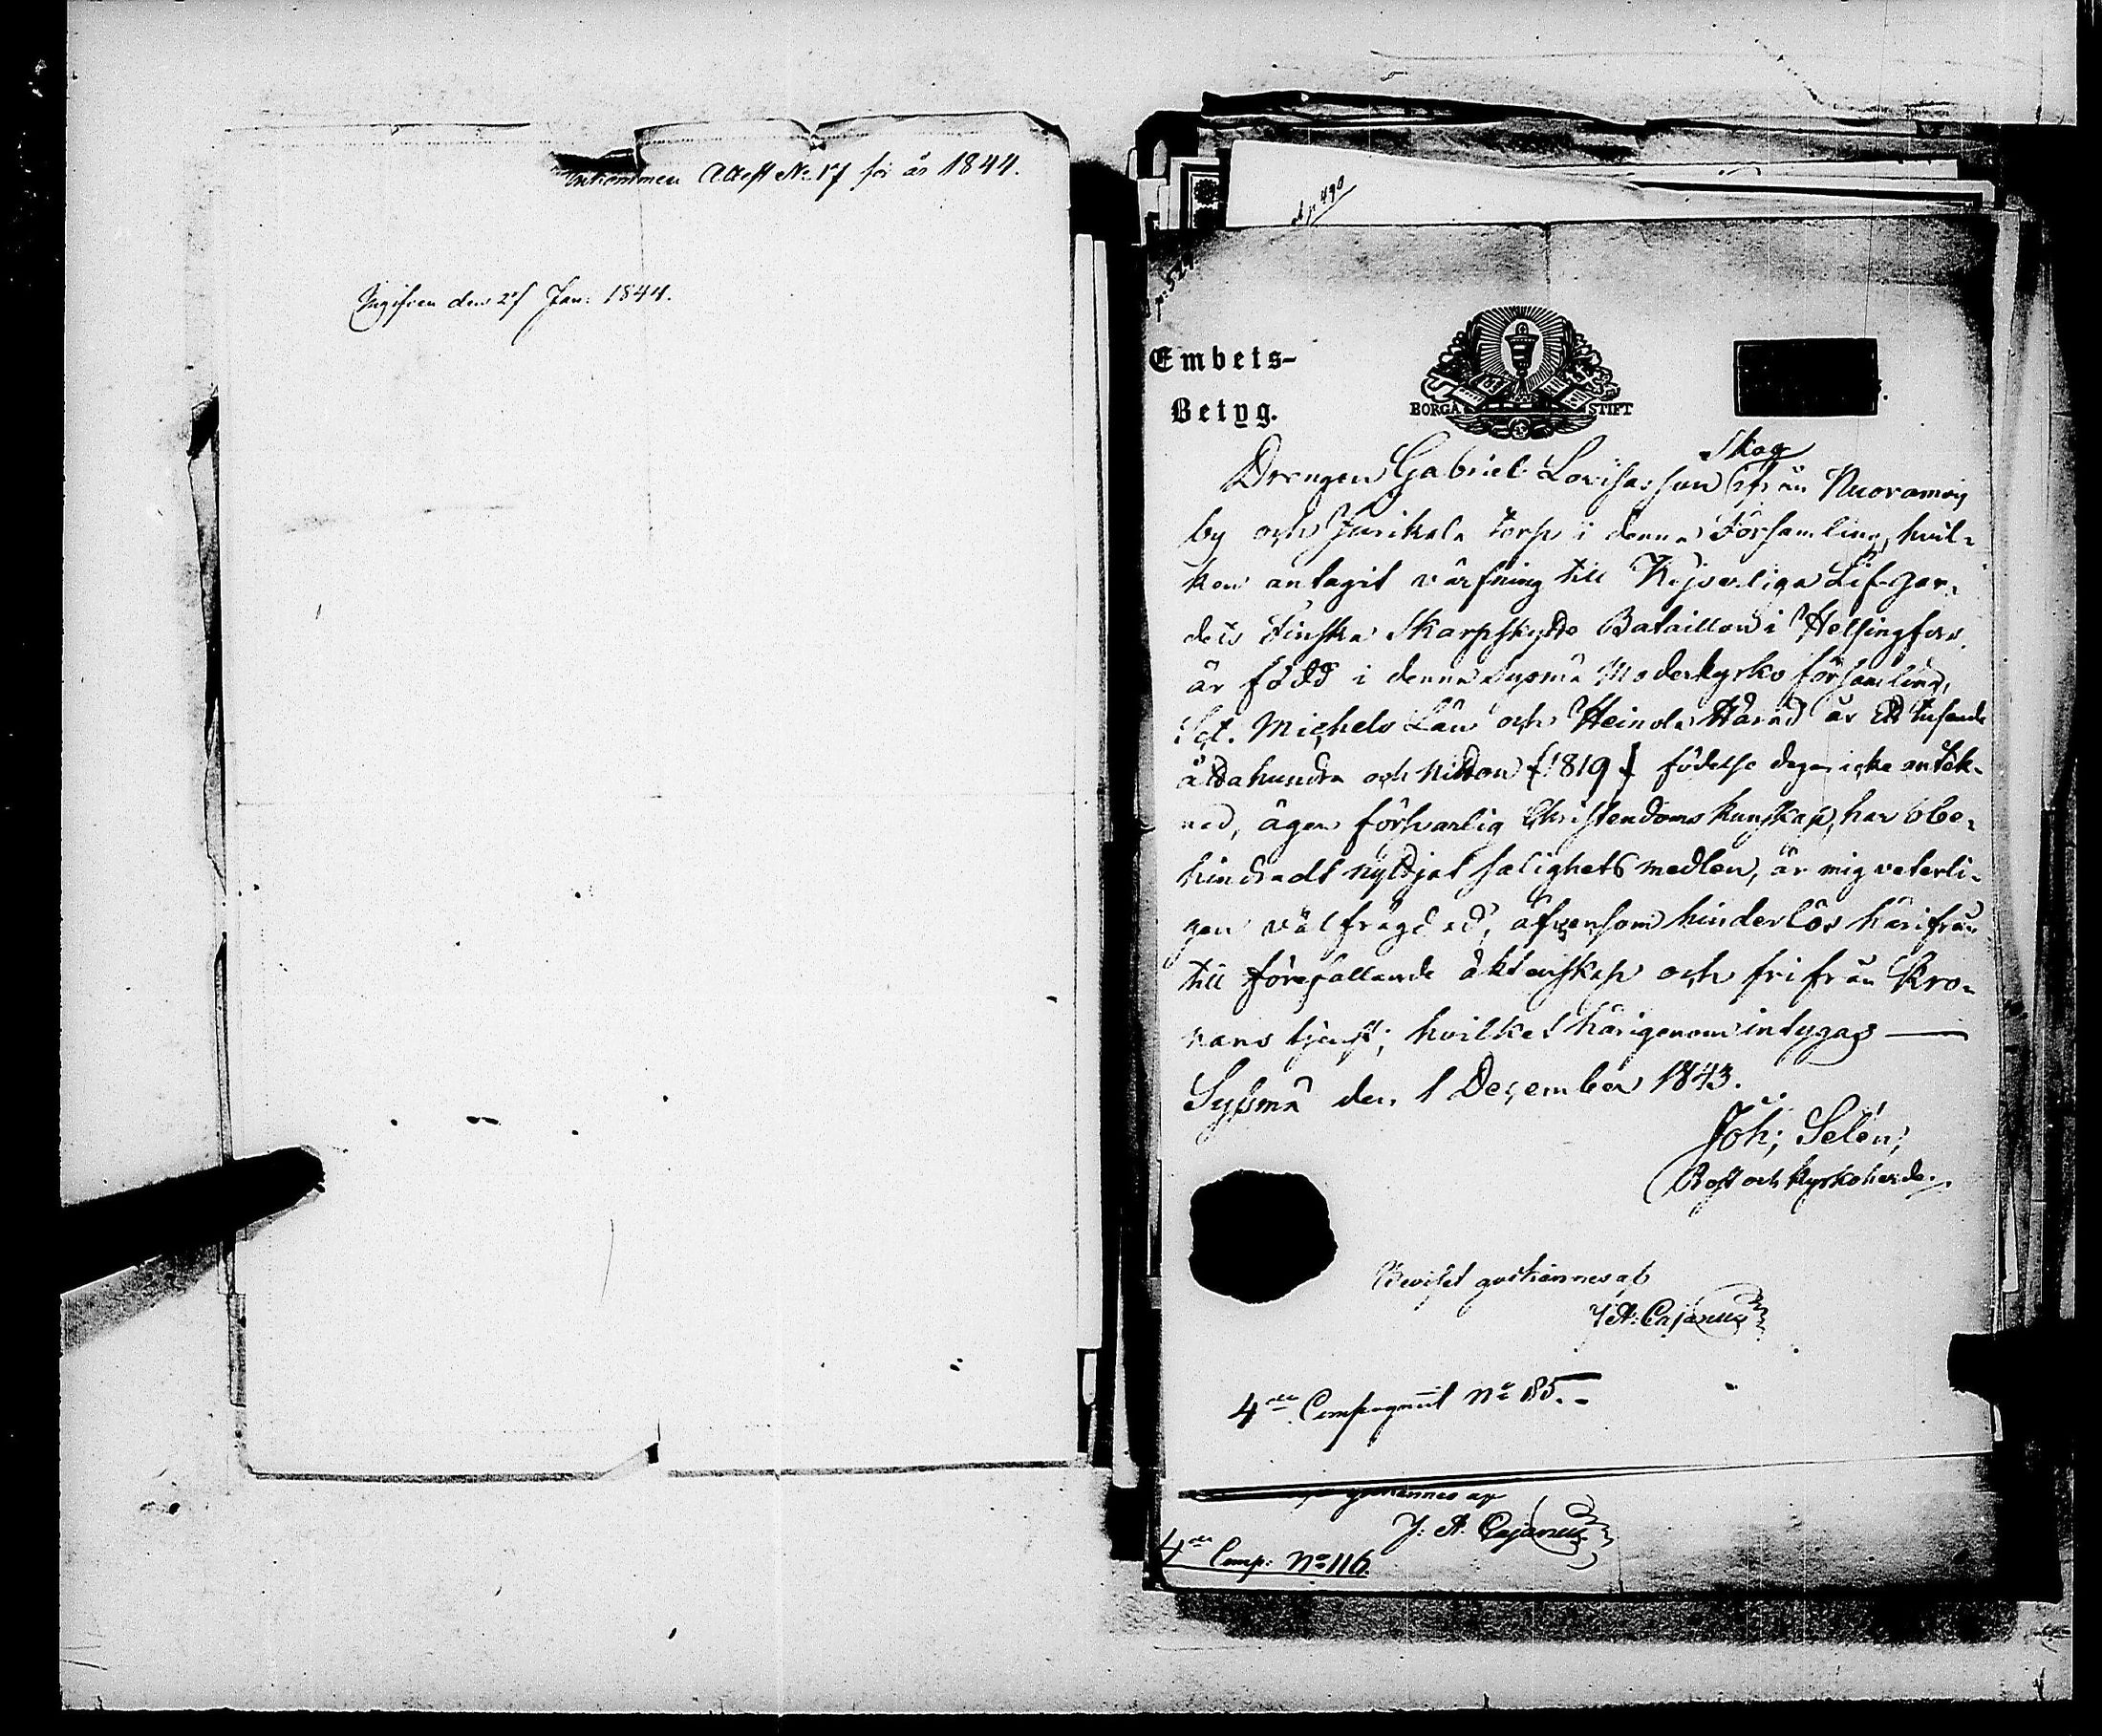 Inkommen Attest No 17 för år 1844.
Ingifven den 27 Jan: 1844.
p. 490
Embets-
Betyg.
BORGÅ STIFT
Skog
Drengen Gabriel Lovisasson ifrån Nuoramois
by och Jurikala torp i denna Församling, hvil-
ken antagit värfning till Kejserliga Lif-gar-
dets Finska Skarpskytte Bataillon i Helsingfors,
är född i denna Sysmä Moderkyrko församling,
Sct. Michels Län och Heinola Härad år Ett tusende
åttahundra och nitton (1819) födelse dagen icke anték-
nad, äger försvarlig Christendoms kunskap, har obe-
hindradt nyttjat salighets medlen, är mig veterli-
gen välfrägdad, äfvensom hinderlös härifrån
till förefallande äktenskap och fri från Kro-
nans tjenst; hvilket härigenom intygas —
Sysmä den 1 December 1843.
Joh; Selén;
Prost och Kyrkoherde.
Beviset godkännes af
J. A. Cajanus
4de Compagniet No 185.-
godkännes af
J. A. Cajanus
4de Comp: No 116.